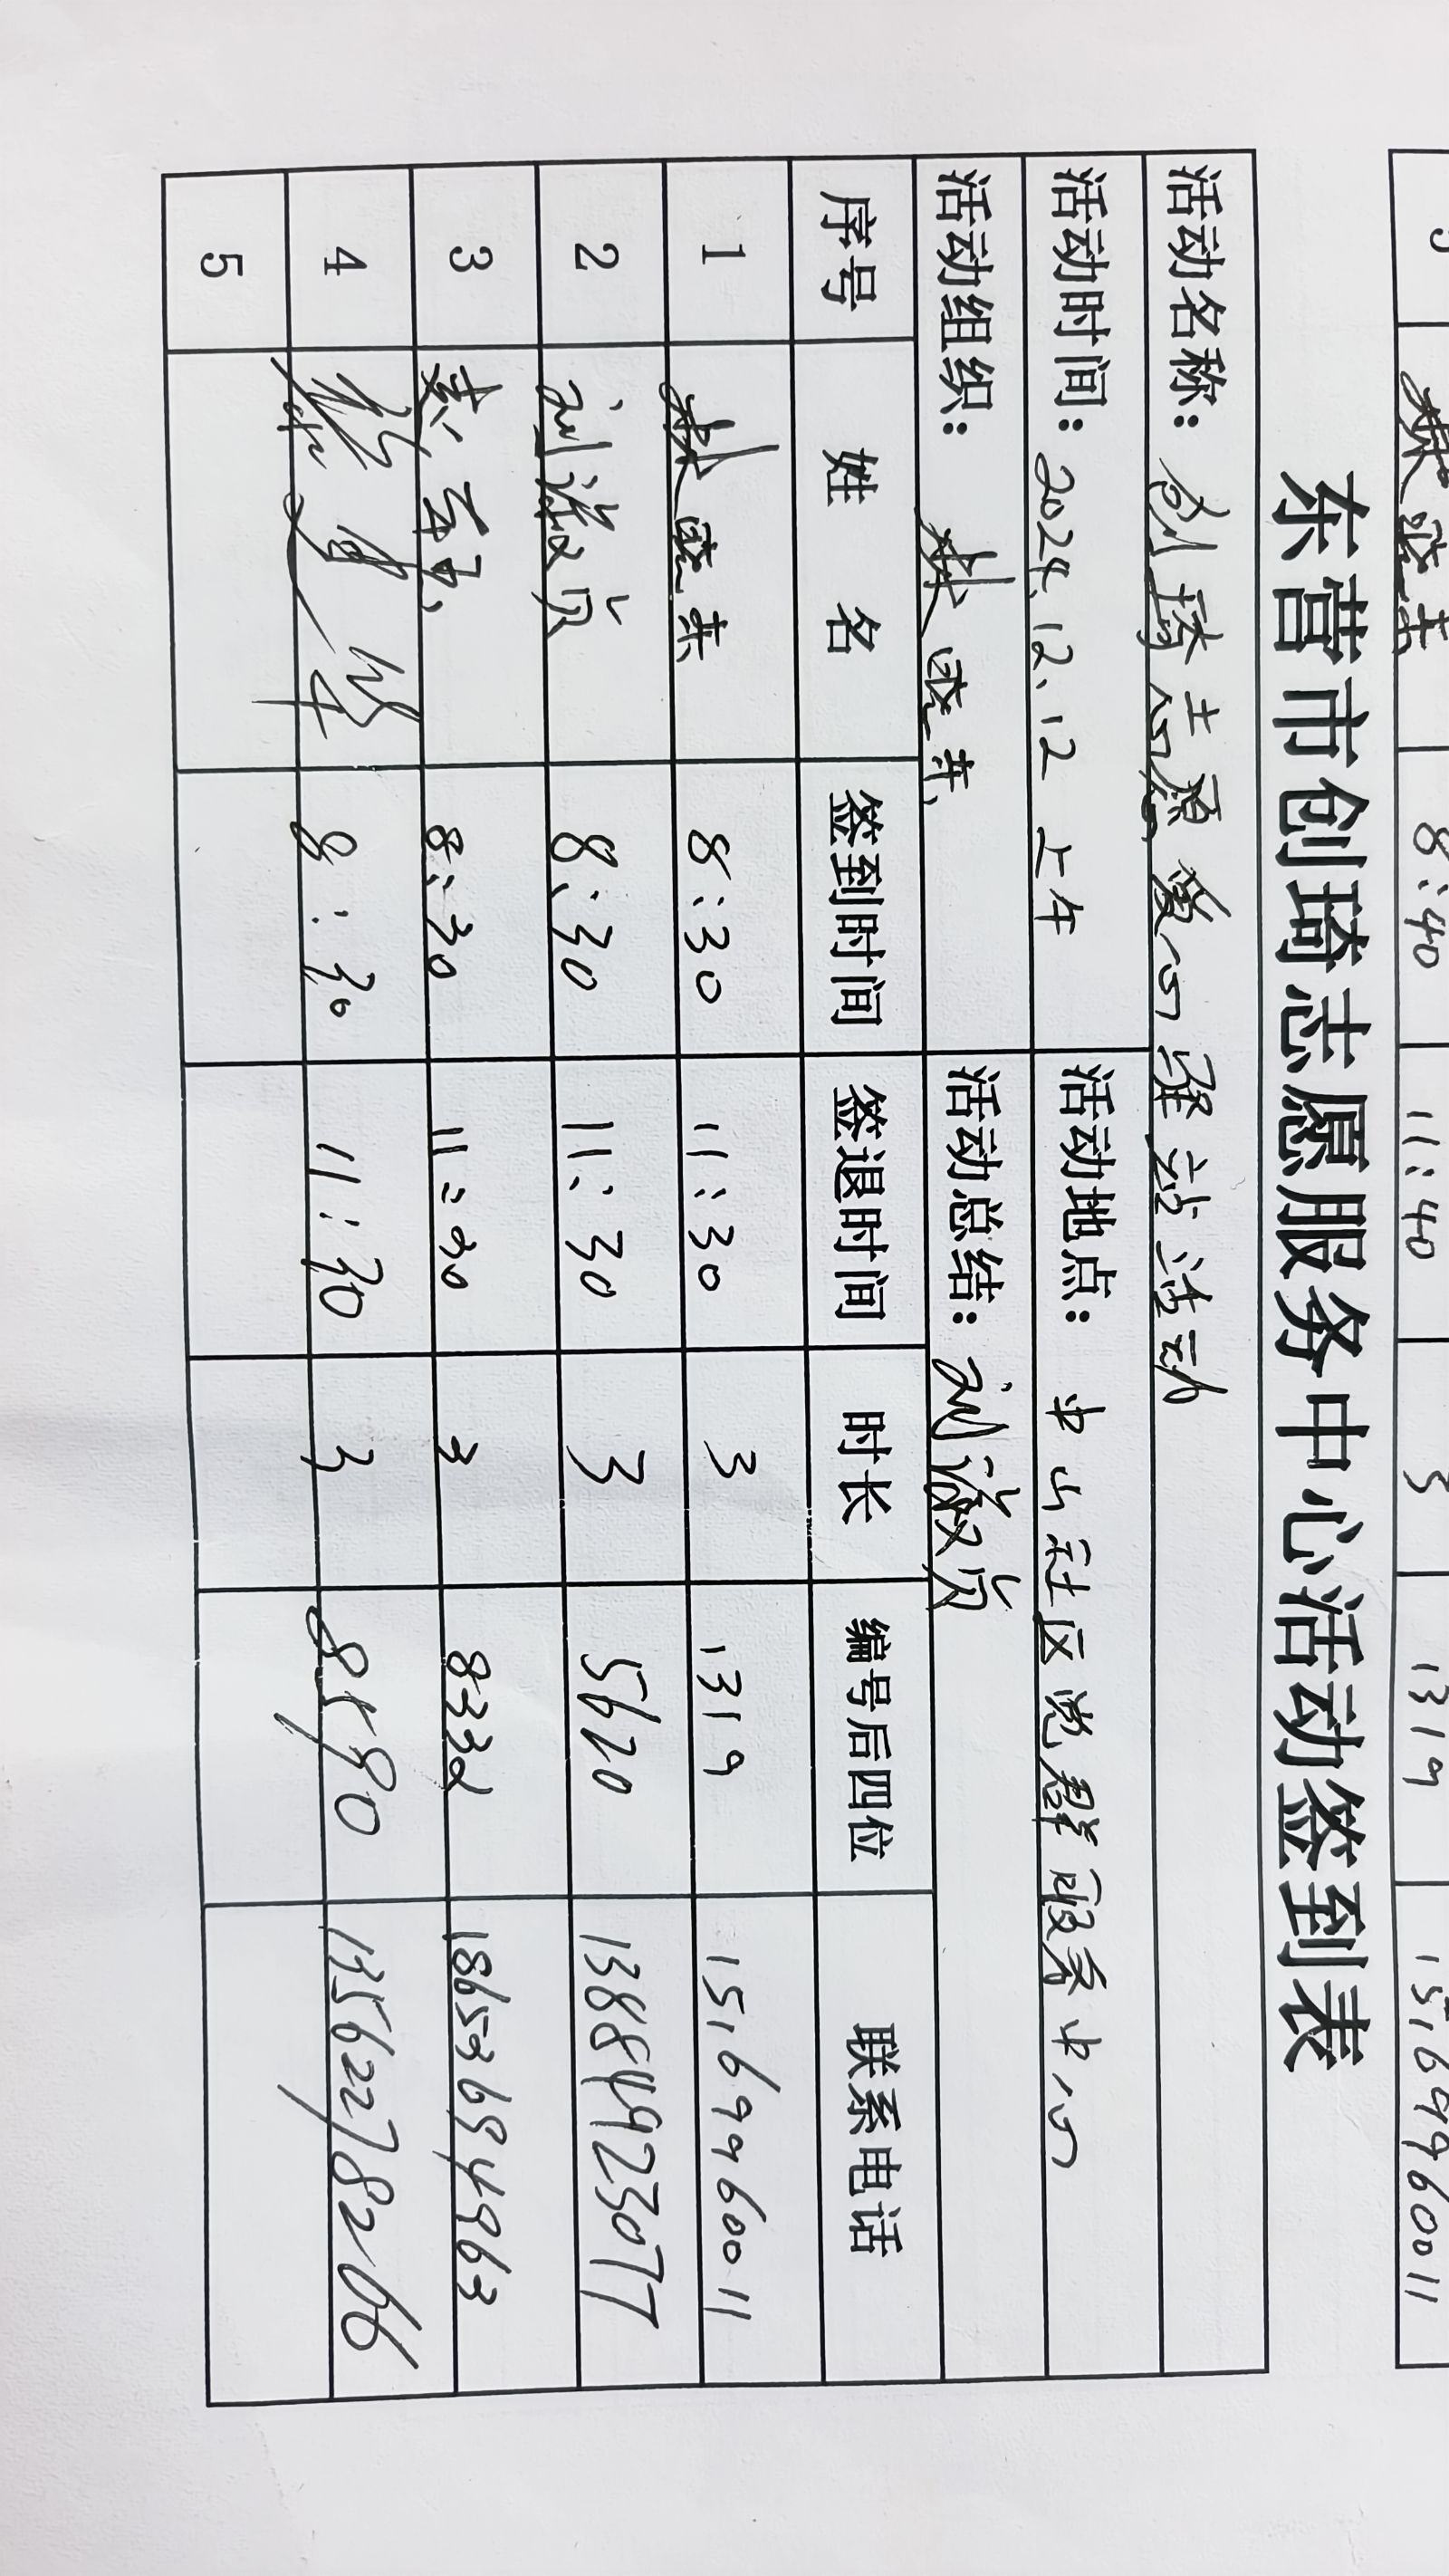 8:40 11:40 1319 15169960011
东营市创琦志愿服务中心活动签到表
活动名称: 创琦志愿爱心驿站活动
活动时间: 2024.12.12 上午 活动地点: 中山社区党群服务中心
活动组织: 活动总结: 刘淑贞
序号 姓 名 签到时间 签退时间 时长 编号后四位 联系电话
1 8:30 11:30 3 1319 15169960011
2 刘淑贞 8:30 11:30 3 5620 13884923077
3 8:30 11:30 3 8332 18653694963
4 8:30 11:30 3 8590 13562278266
5